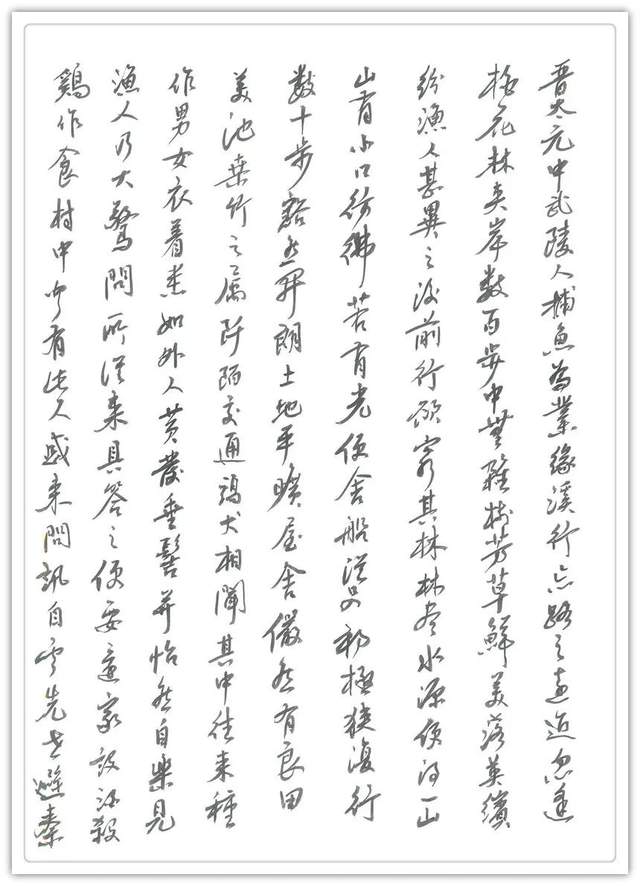 晋太元中武陵人捕魚為業緣溪行忘路之遠近忽逢
桃花林夹岸数百步中無雜樹芳草鮮美落英繽
紛漁人甚異之復前行欲窮其林林尽水源便得一山
山有小口彷彿若有光便舍船從口初極狹復行
数十步豁然開朗土地平曠屋舍儼然有良田
美池桑竹之属阡陌交通鷄犬相聞其中往来種
作男女衣着悉如外人黄髮垂髫并怡然自樂見
漁人乃大驚問所從来具答之便要還家設酒殺
鷄作食村中聞有此人咸来問訊自云先世避秦